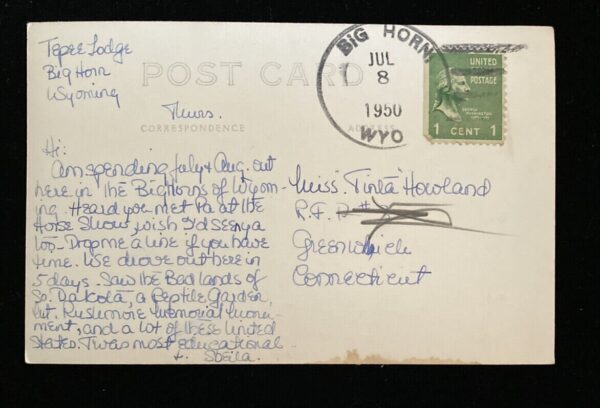 Tepee Lodge
Big Horn
Wyoming
POST CARD
Thurs.
CORRESPONDENCE
ADDRESS
BIG HORN
JUL
8
1950
WYO
UNITED
POSTAGE
1 CENT 1
Hi:
Am spending July & Aug. out
here in the Bighorns of Wyom-
ing. Heard you met Pa at the
Horse Show, wish I'd seen ya
too - Drop me a line if you have
time. We drove out here in
5 days. Saw the Bad lands of
So. Dakota, a Reptile Garden,
Mt. Rushmore Memorial Monu-
ment, and a lot of these United
States. Twas most educational
Sheila.
Miss. "Tinta" Howland
R.F.D.#
Greenwich
Connecticut